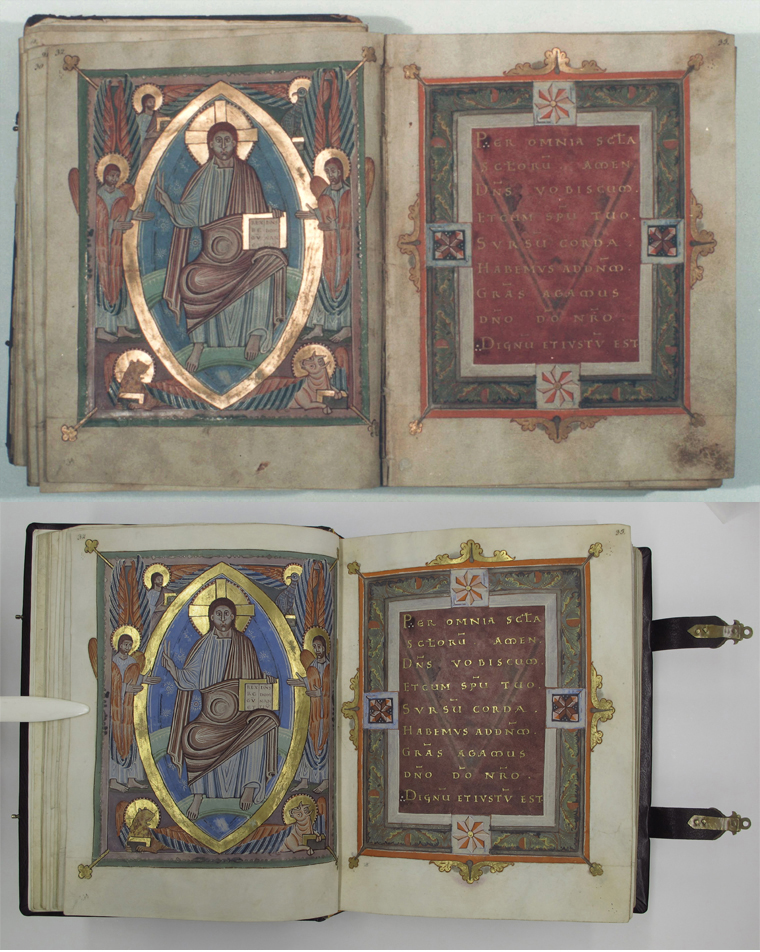 PER OMNIA SCLA
SCLORŪ AMEN
DN̄S VOBISCUM.
ETCUM SPŪ TUO.
SVRSŪ CORDA.
HABEMVS ADDN̄M.
GRĀS AGAMUS
DN̄O DŌ NR̄O.
DIGNŪ ETIVSTV̄ EST
PER OMNIA SCLA
SCLORŪ AMEN
DN̄S VOBISCUM.
ETCUM SPŪ TUO
SVRSŪ CORDA.
HABEMVS ADDN̄M.
GRĀS AGAMUS
DN̄O DŌ NR̄O.
DIGNŪ ETIVSTV̄ EST